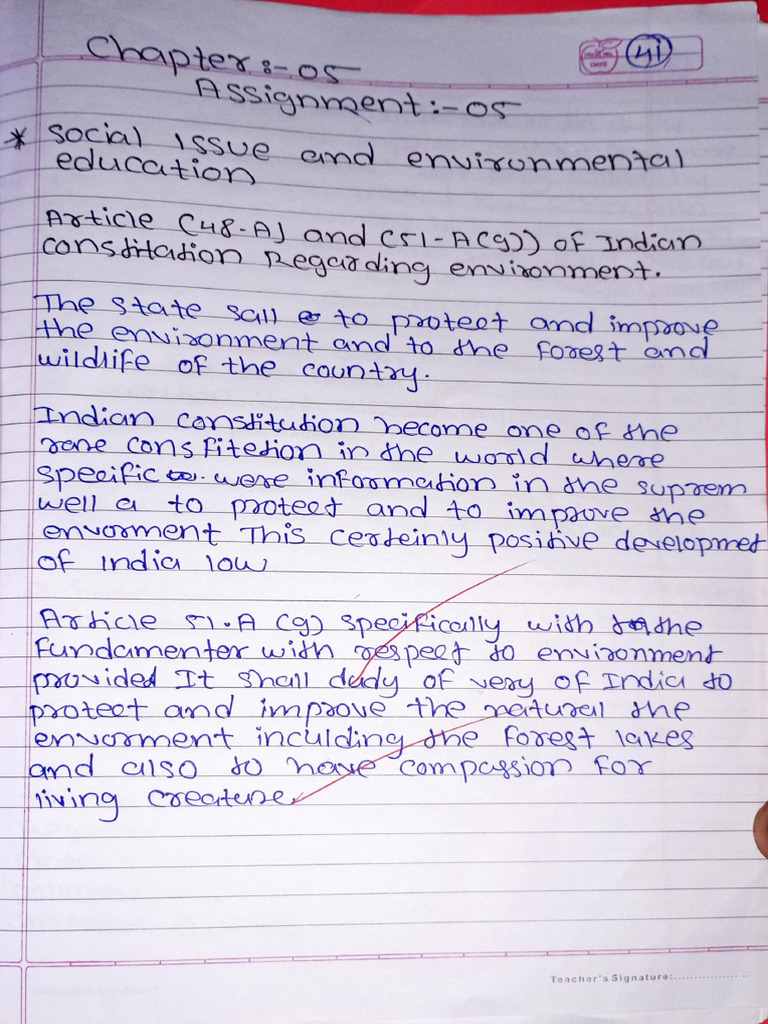 41
Chapter:-05
Assignment:-05
* Social Issue and environmental
education
Article (48-A) and (51-A(g)) of Indian
constitation Regarding environment.
The state sall to protect and improve
the environment and to the forest and
wildlife of the country.
Indian constitution become one of the
rare consfitetion in the world where
specific were information in the suprem
well a to protect and to improve the
envorment This certeinly positive developmet
of India low
Article 51.A (g) specifically with the
fundamenter with respect to environment
provided It shall dudy of very of India to
protect and improve the natural the
envorment inculding the forest lakes
and also to have compassion for
living creature.
Teacher's Signature:..................